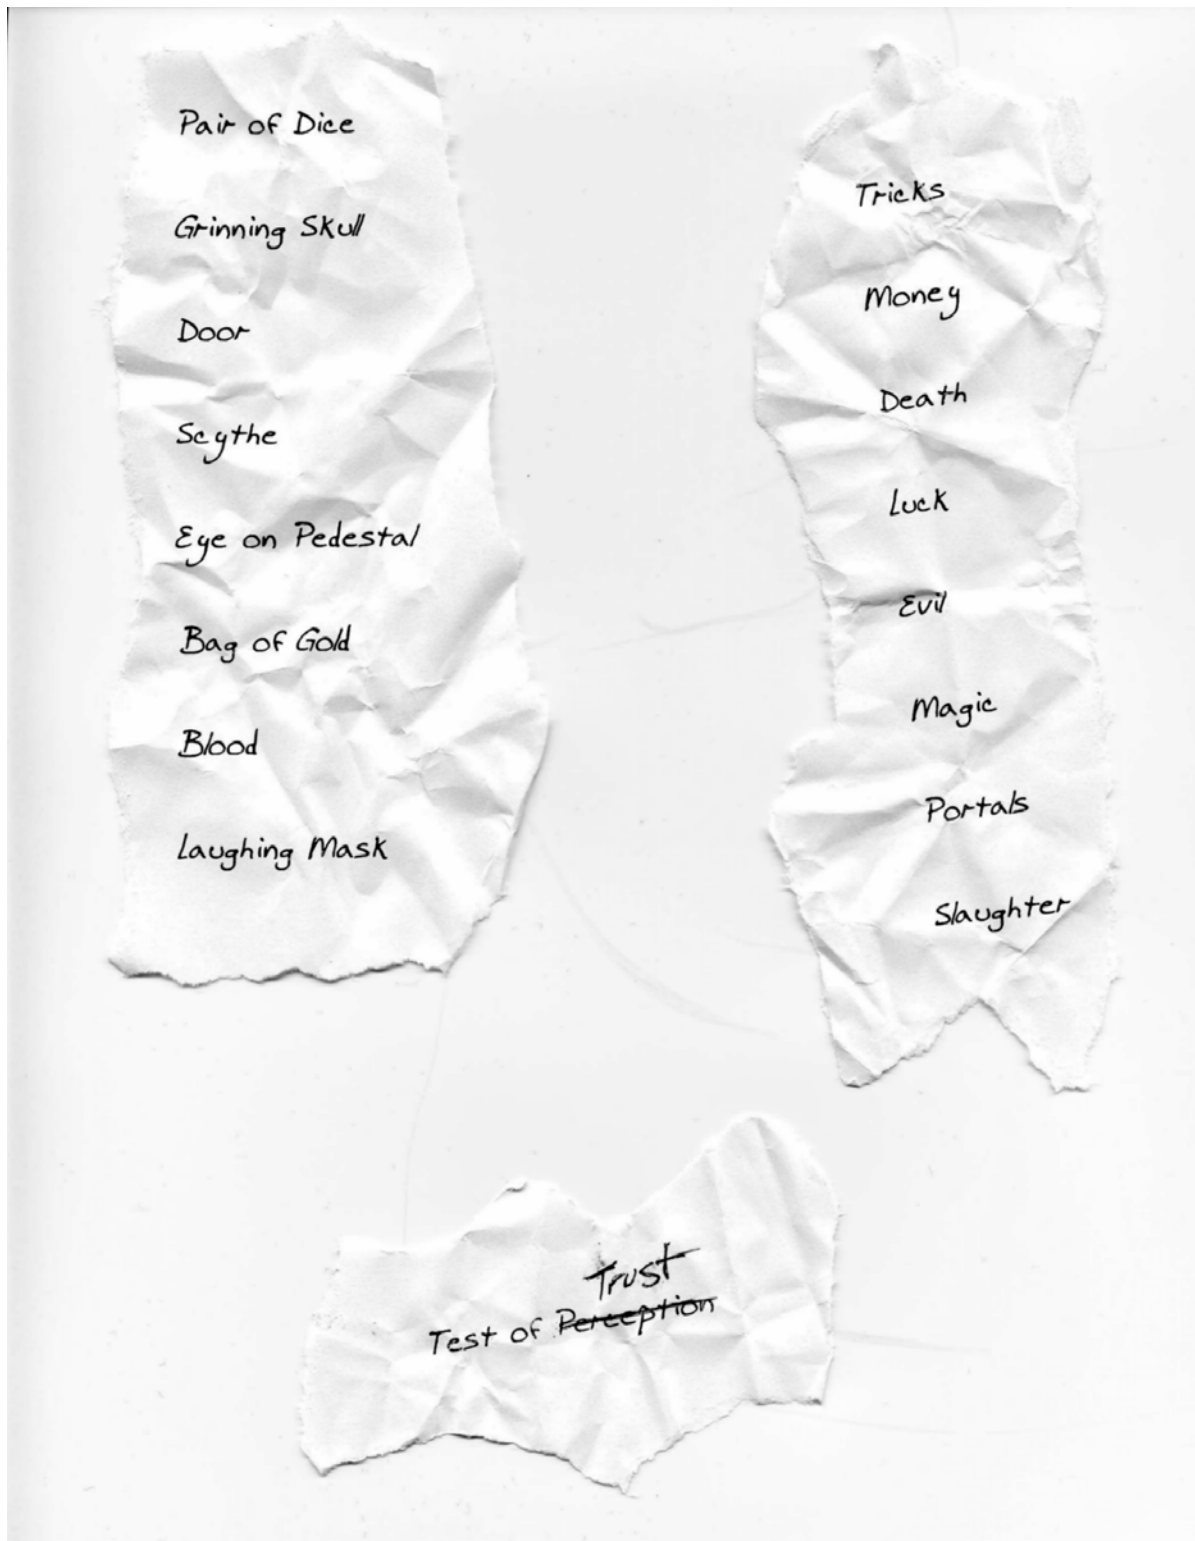 Pair of Dice
Grinning Skull
Door
Scythe
Eye on Pedestal
Bag of Gold
Blood
Laughing Mask
Tricks
Money
Death
Luck
Evil
Magic
Portals
Slaughter
Trust
Test of Perception